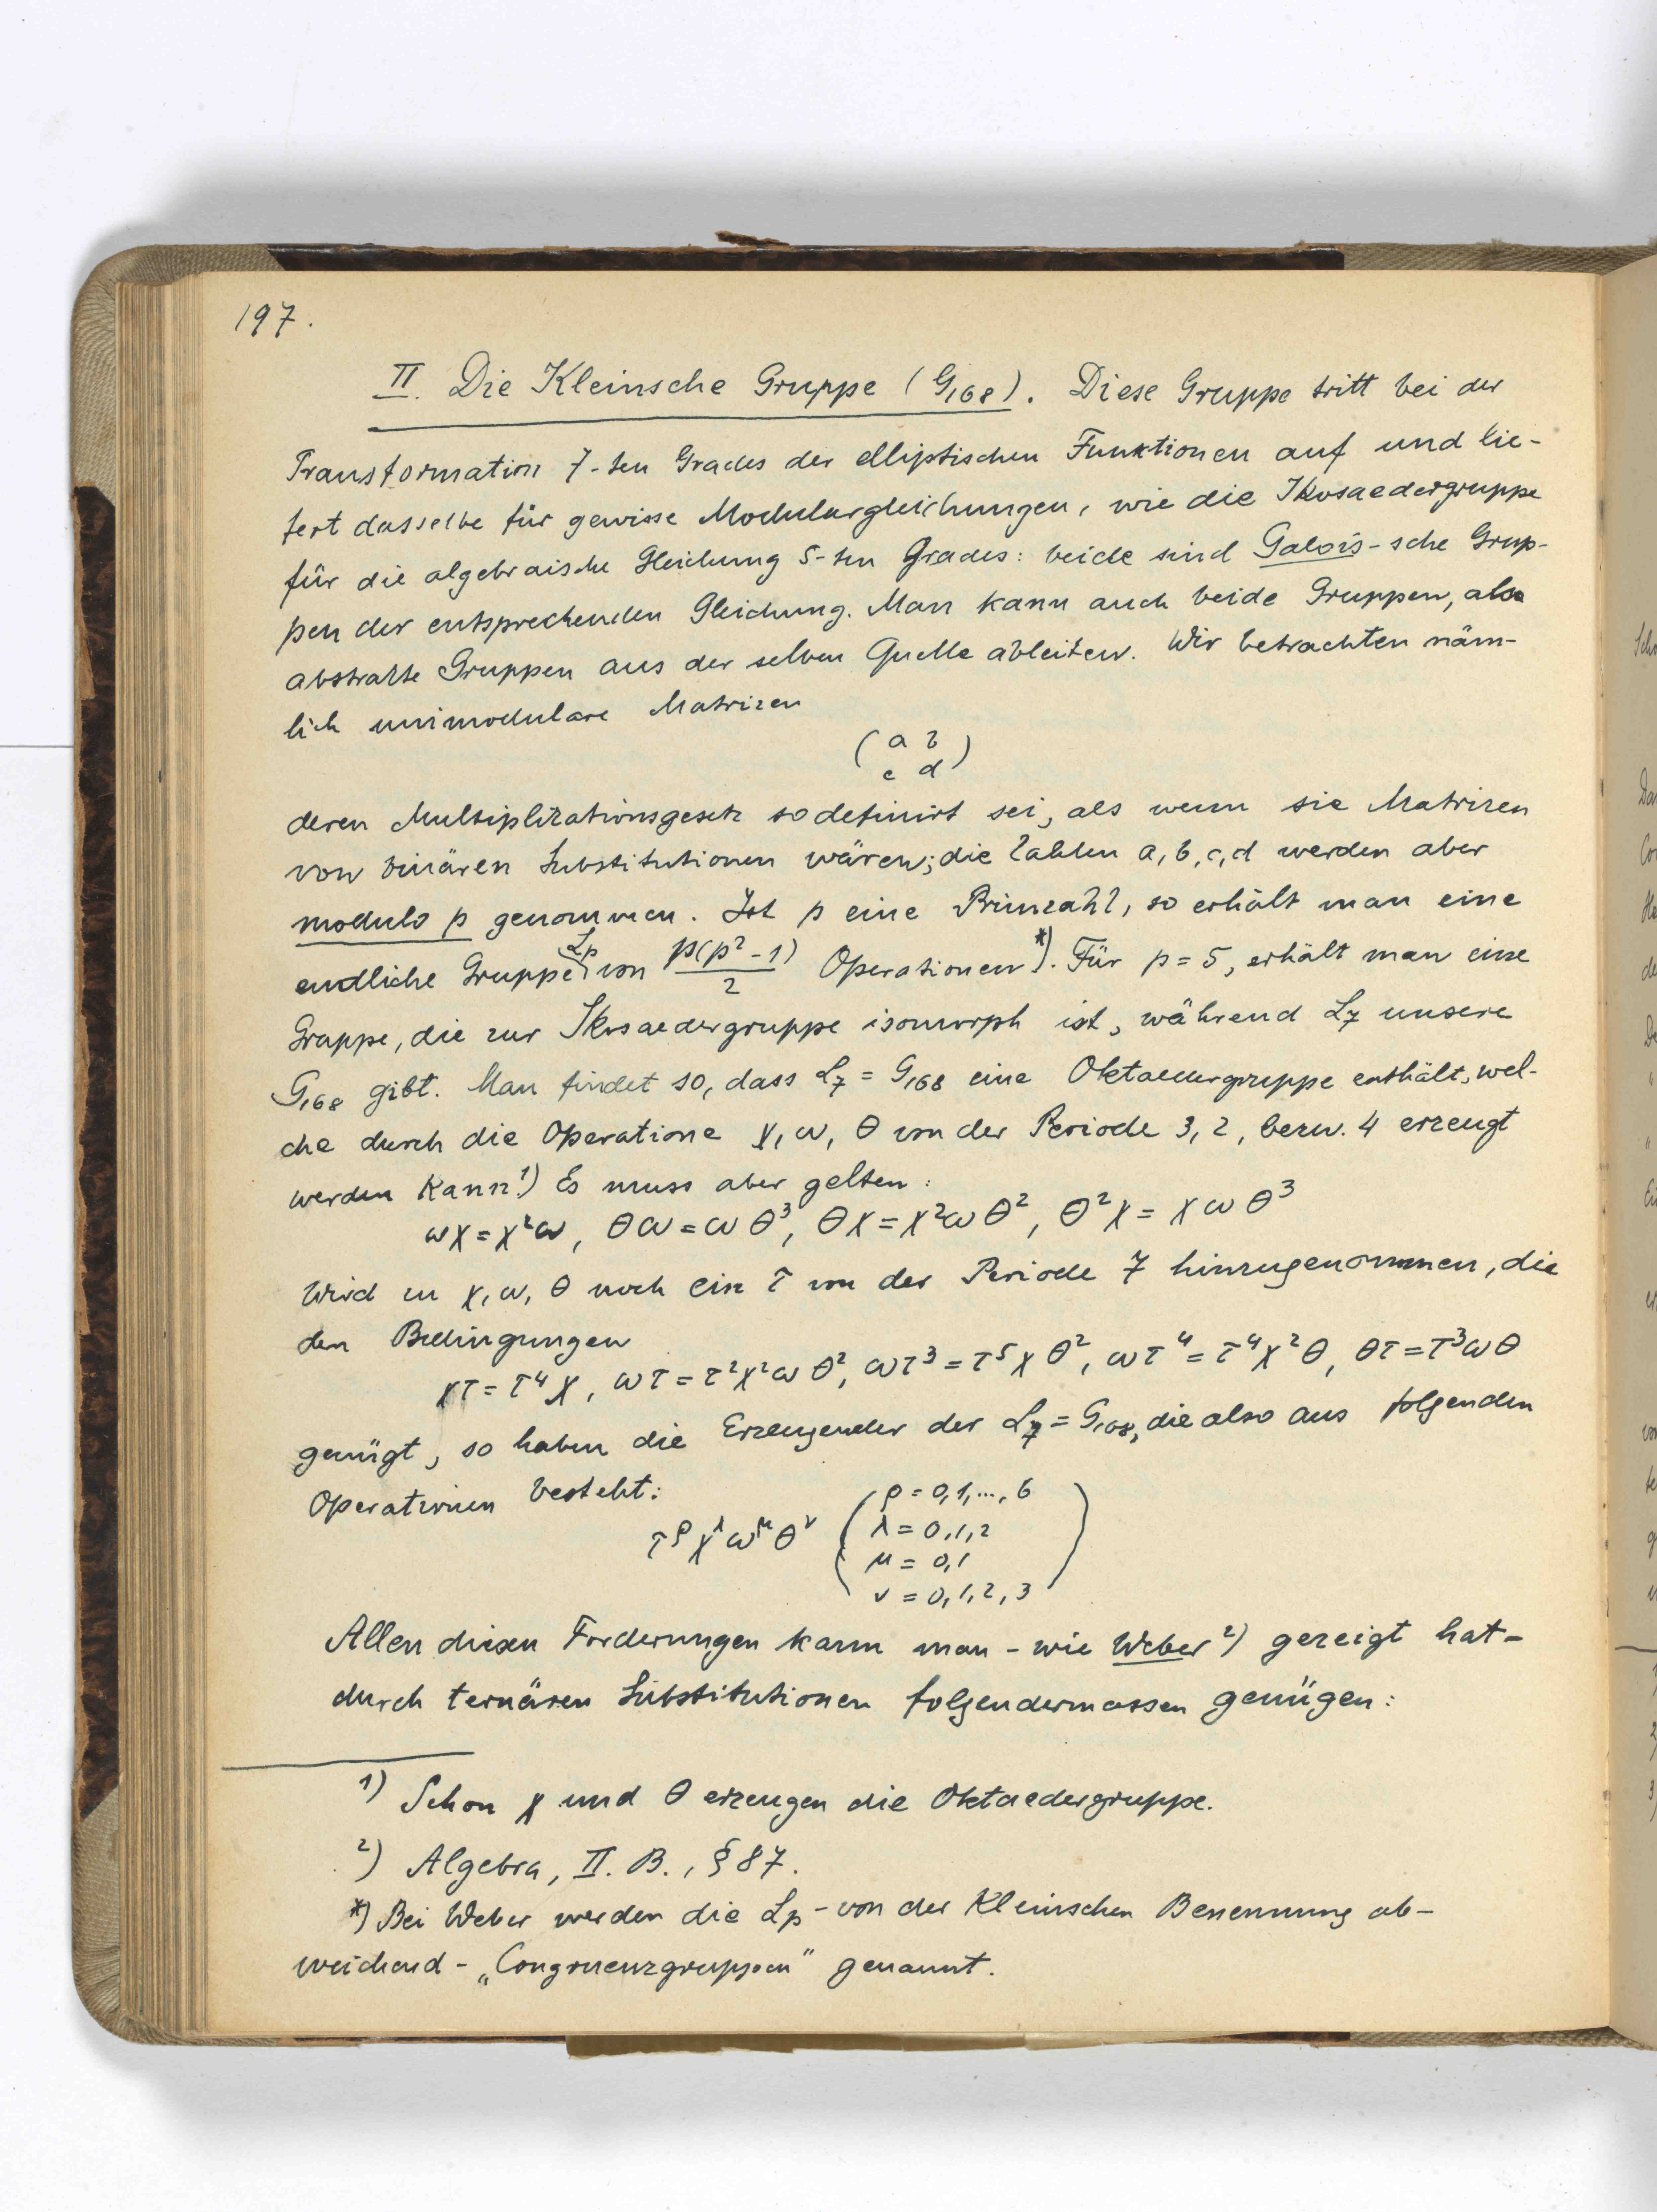 197.
II. Die Kleinsche Gruppe (G₁₆₈). Diese Gruppe tritt bei der
Transformation 7-ten Grades der elliptischen Funktionen auf und lie-
fert dasselbe für gewisse Modulargleichungen, wie die Ikosaedergruppe
für die algebraische Gleichung 5-ten Grades: beide sind Galois-sche Grup-
pen der entsprechenden Gleichung. Man kann auch beide Gruppen, als
abstrakte Gruppen aus der selben Quelle ableiten. Wir betrachten näm-
lich unimodulare Matrizen
( a b )
c d
deren Multiplikationsgesetz so definirt sei, als wenn sie Matrizen
von binären Substitutionen wären; die Zahlen a, b, c, d werden aber
modulo p genommen. Ist p eine Primzahl, so erhält man eine
endliche Gruppe Lp von p(p²-1)/2 Operationen*). Für p = 5, erhält man eine
Gruppe, die zur Ikosaedergruppe isomorph ist, während L₇ unsere
G₁₆₈ gibt. Man findet so, dass L₇ = G₁₆₈ eine Oktaedergruppe enthält, wel-
che durch die Operatione χ, ω, θ von der Periode 3, 2, bezw. 4 erzeugt
werden kann.¹) Es muss aber gelten:
ωχ = χ²ω, θω = ωθ³, θχ = χ²ωθ², θ²χ = χωθ³
Wird zu χ, ω, θ noch ein τ von der Periode 7 hinzugenommen, die
den Bedingungen
χτ = τ⁴χ, ωτ = τ²χ²ωθ², ωτ³ = τ⁵χθ², ωτ⁴ = τ⁴χ²θ, θτ = τ³ωθ
genügt, so haben die Erzeugender der L₇ = G₁₆₈, die also aus folgenden
Operationen besteht:
τ^ρ χ^λ ω^μ θ^ν ( ρ = 0,1,...,6
λ = 0,1,2
μ = 0,1
ν = 0,1,2,3 )
Allen diesen Forderungen kann man - wie Weber²) gezeigt hat -
durch ternären Substitutionen folgendermassen genügen:
¹) Schon χ und θ erzeugen die Oktaedergruppe.
²) Algebra, II. B., § 87.
*) Bei Weber werden die Lp - von der Kleinschen Benennung ab-
weichend - „Congruenzgruppen" genannt.